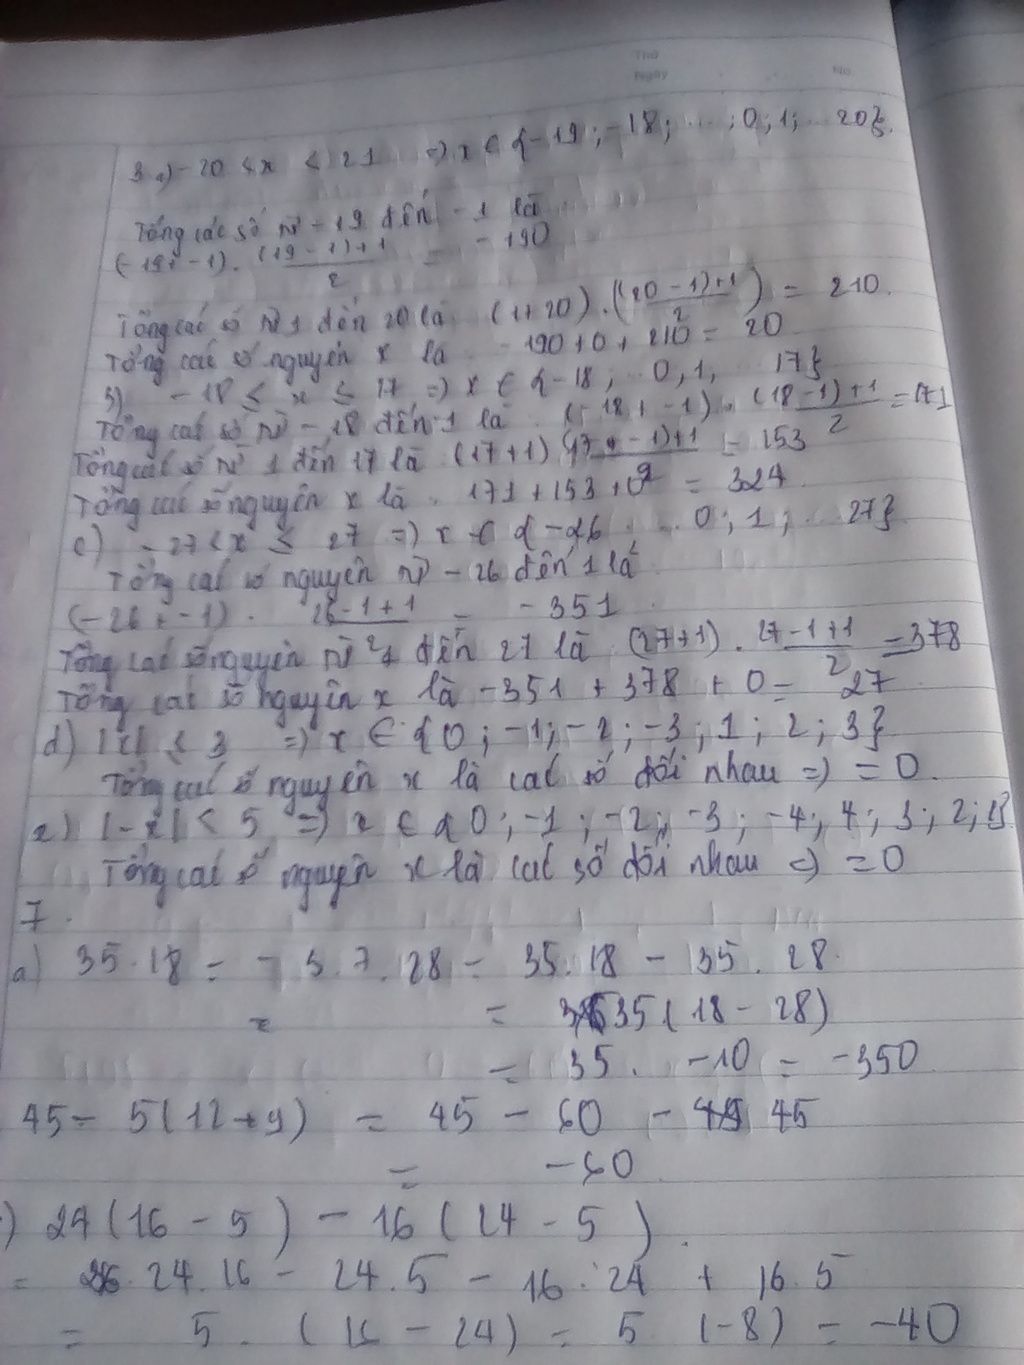 Thứ
Ngày No.
3 a) -20 < x < 21 => x ∈ {-19; -18; ...; 0; 1; ... 20}.
Tổng các số từ -19 đến -1 là
(-19+-1). (19-1)+1 / 2 = -190
Tổng các số từ 1 đến 20 là (1+20).((20-1)+1 / 2) = 210.
Tổng các số nguyên x là -190+0+210 = 20
b) -18 ≤ x ≤ 17 => x ∈ {-18; 0, 1, 17}
Tổng các số từ -18 đến -1 là (-18+-1). (18-1)+1 / 2 = 171
Tổng các số từ 1 đến 17 là (17+1) (17-1)+1 / 2 = 153
Tổng các số nguyên x là. 171+153+0 = 324.
c) -27 < x ≤ 27 => x ∈ {-26 ... 0; 1; ... 27}
Tổng các số nguyên từ -26 đến 1 là
(-26+-1). 26-1+1 / 2 = -351.
Tổng các số nguyên từ 1 đến 27 là (27+1). 27-1+1 / 2 = 378
Tổng các số nguyên x là -351 + 378 + 0 = 27
d) |x| ≤ 3 => x ∈ {0; -1; -2; -3; 1; 2; 3}
Tổng các số nguyên x là các số đối nhau => = 0.
e) |-x| < 5 => x ∈ {0; -1; -2; -3; -4; 4; 3; 2; 1}
Tổng các số nguyên x là các số đối nhau => = 0
7.
a) 35.18 = - 5.7.28 = 35.18 - 35.28.
= = 35(18-28)
= 35. -10 = -350
45 - 5(12+9) = 45 - 60 - 45
= -60
) 24(16-5) - 16(24-5).
= 24.16 - 24.5 - 16.24 + 16.5
= 5. (16-24) = 5 (-8) = -40